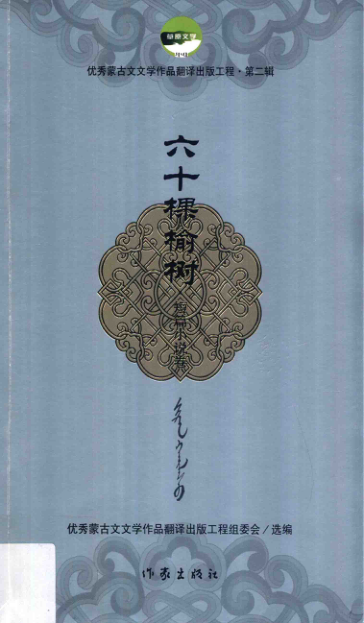 草原文学
优秀蒙古文文学作品翻译出版工程·第二辑
六十棵榆树
短篇小说卷
优秀蒙古文文学作品翻译出版工程组委会/选编
作家出版社